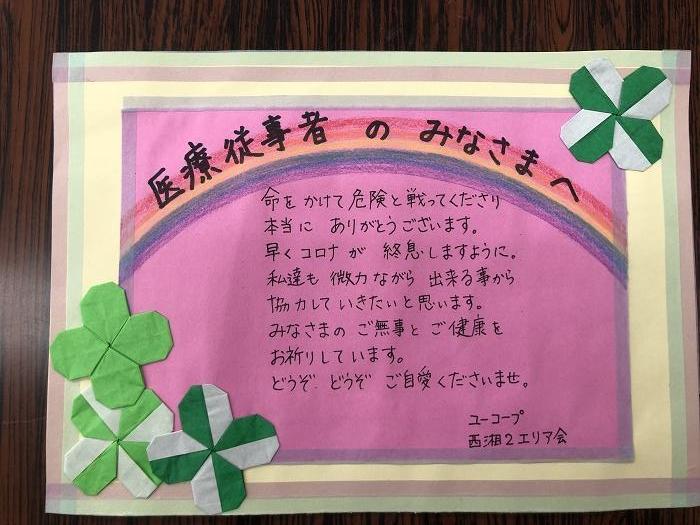 医療従事者 の みなさまへ
命を かけて 危険と戦ってくださり
本当に ありがとうございます。
早く コロナ が 終息しますように。
私達も 微力ながら 出来る事から
協力して いきたいと思います。
みなさまの ご無事と ご健康を
お祈りしています。
どうぞ、どうぞ ご自愛くださいませ。
ユーコープ
西湘2エリア会